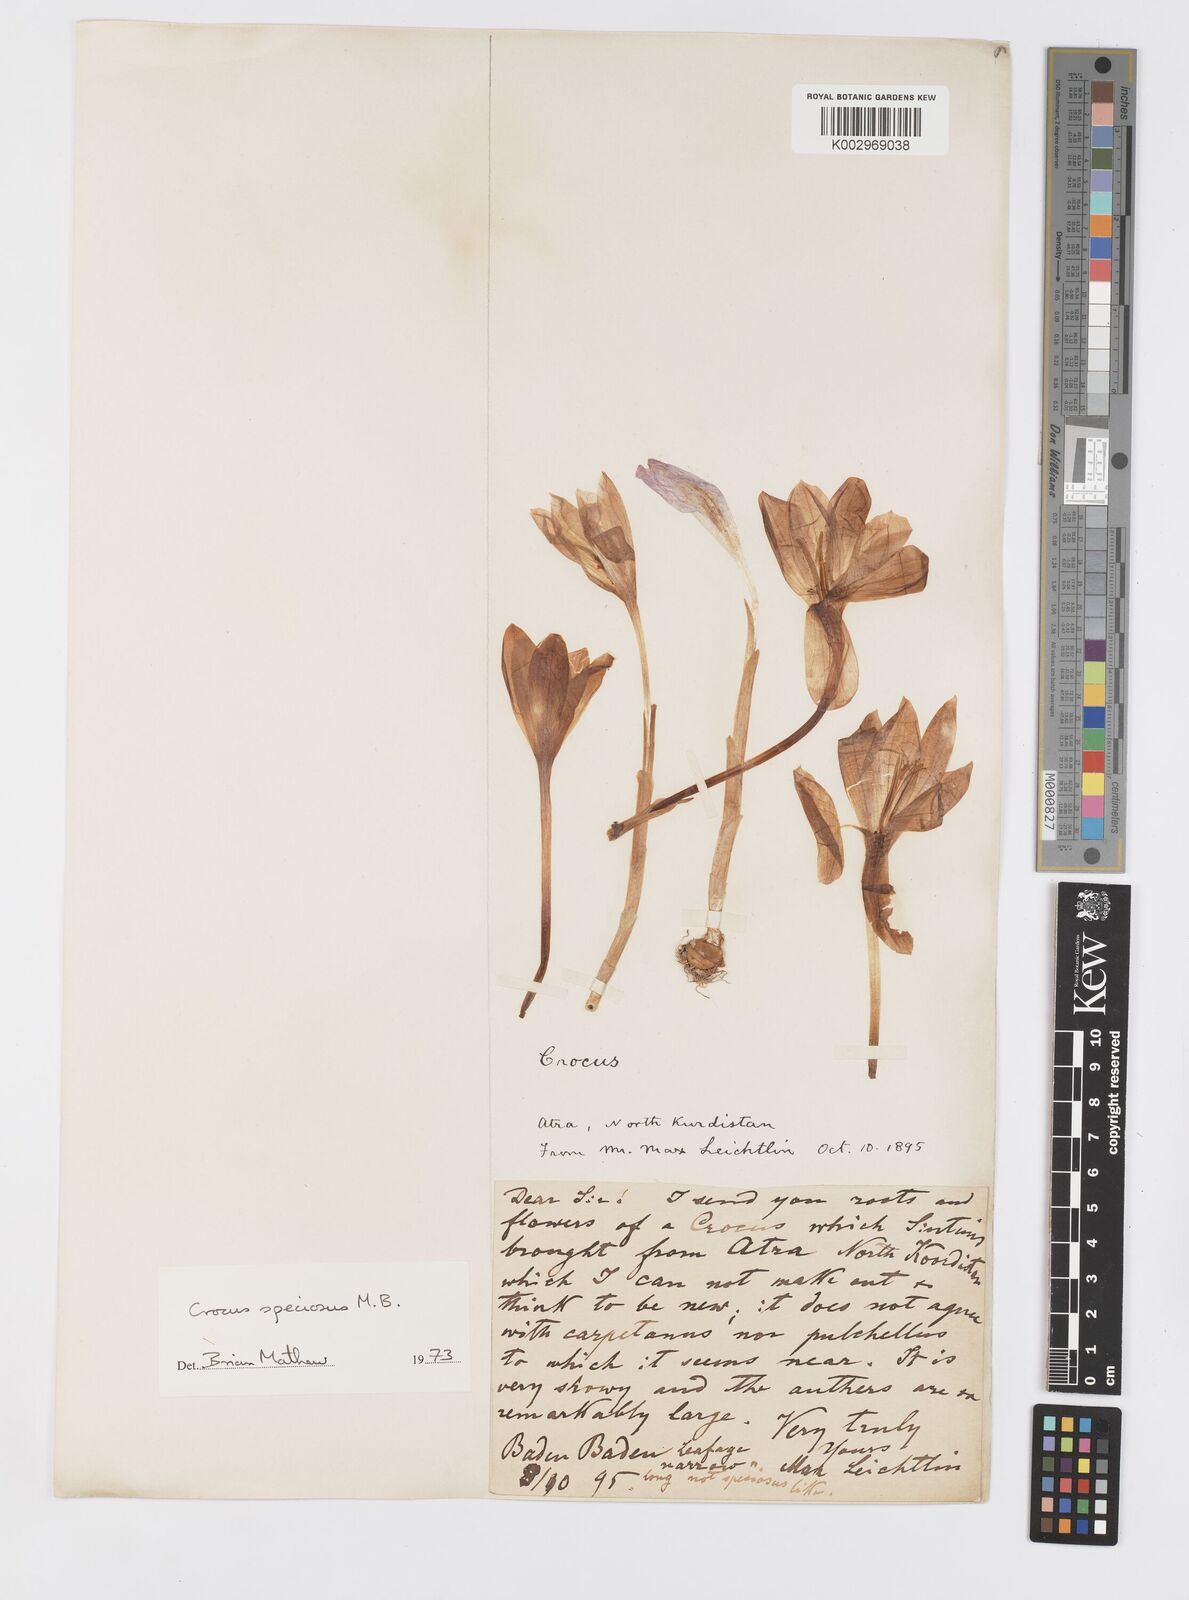 ROYAL BOTANIC GARDENS KEW
K002969038
Crocus
Atra, North Kurdistan
From Mr. Max Leichtlin Oct. 10. 1895
Dear Sir! I send you roots and
flowers of a Crocus which Sintenis
brought from Atra North Koordistan
which I can not make out &
think to be new; it does not agree
with carpetanus nor pulchellus
to which it seems near. It is
very showy and the anthers are
remarkably large. Very truly
Baden Baden leafage Yours
narrow Max Leichtlin
/10 95. long not speciosus like.
Crocus speciosus M.B.
Det. Brian Mathew 1973
inches
centimeters
Density
Don Williams
M000827
Kew
Royal Botanic Gardens
copyright reserved
0 1 2 3 4 5 6 7 8 9 10
cm